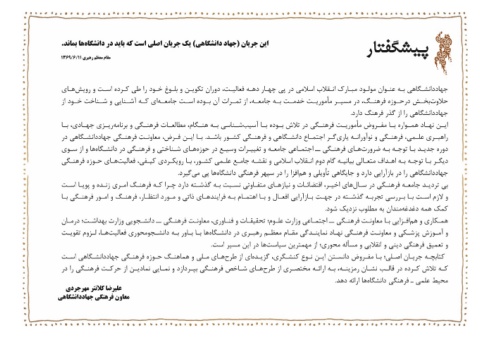 پیشگفتار
این جریان (جهاد دانشگاهی) یک جریان اصلی است که باید در دانشگاه‌ها بماند.
مقام معظم رهبری ۱۳۶۹/۶/۱۱
جهاددانشگاهی به عنوان مولود مبارک انقلاب اسلامی در پی چهار دهه فعالیت، دوران تکوین و بلوغ خود را طی کرده است و رویش‌های
حلاوت‌بخش در حوزه فرهنگ، در مسیر مأموریت خدمت به جامعه، از ثمرات آن بوده است جامعه‌ای که آشنایی و شناخت خود از
جهاددانشگاهی را از گذر فرهنگ دارد.
این نهاد همواره با مفروض مأموریت فرهنگی در تلاش بوده با آسیب‌شناسی به هنگام، مطالعات فرهنگی و برنامه‌ریزی جهادی، با
راهبری علمی، فرهنگی و نوآورانه یاری‌گر اجتماع دانشگاهی و فرهنگی کشور باشد. از این فرض، معاونت فرهنگی جهاددانشگاهی در
دوره جدید با توجه به ضرورت‌های فرهنگی ــ اجتماعی جامعه و تغییرات وسیع در حوزه‌های شناختی و فرهنگی در دانشگاه‌ها و از سوی
دیگر با توجه به اهداف متعالی بیانیه گام دوم انقلاب اسلامی و نقشه جامع علمی کشور، با رویکردی کیفی، فعالیت‌های حوزه فرهنگی
جهاددانشگاهی را در بازآرایی دارد و جایگاهی تأویلی و هم‌افزا را در سپهر فرهنگی دانشگاه‌ها پی می‌گیرد.
بی تردید جامعه فرهنگی در سال‌های اخیر، اقتضائات و نیازهای متفاوتی نسبت به گذشته دارد چرا که فرهنگ امری زنده و پویا است
و لازم است با بررسی تجربه گذشته در جهت بازآرایی افعال و با اهتمام به فرایندهای ذاتی و مورد انتظار، فرهنگ و امور فرهنگی با
کمک همه دغدغه‌مندان به مطلوب نزدیک شود.
همکاری و هم‌افزایی با معاونت فرهنگی ــ اجتماعی وزارت علوم؛ تحقیقات و فناوری، معاونت فرهنگی ــ دانشجویی وزارت بهداشت؛ درمان
و آموزش پزشکی و معاونت فرهنگی نهاد نمایندگی مقام معظم رهبری در دانشگاه‌ها با باور به دانشجومحوری فعالیت‌ها، لزوم تقویت
و تعمیق فرهنگی دینی و انقلابی و مسأله محوری؛ از مهمترین سیاست‌ها در این مسیر است.
کتابچه جریان اصلی؛ با مفروض دانستن این نوع کنشگری، گزیده‌ای از طرح‌های ملی و هماهنگ حوزه فرهنگی جهاددانشگاهی است
که تلاش کرده در قالب نشان رمزینه، به ارائه مختصری از طرح‌های شاخص فرهنگی بپردازد و نمایی نمادین از حرکت فرهنگی را در
محیط علمی ــ فرهنگی دانشگاه‌ها ارائه دهد.
علیرضا کلانتر مهرجردی
معاون فرهنگی جهاددانشگاهی